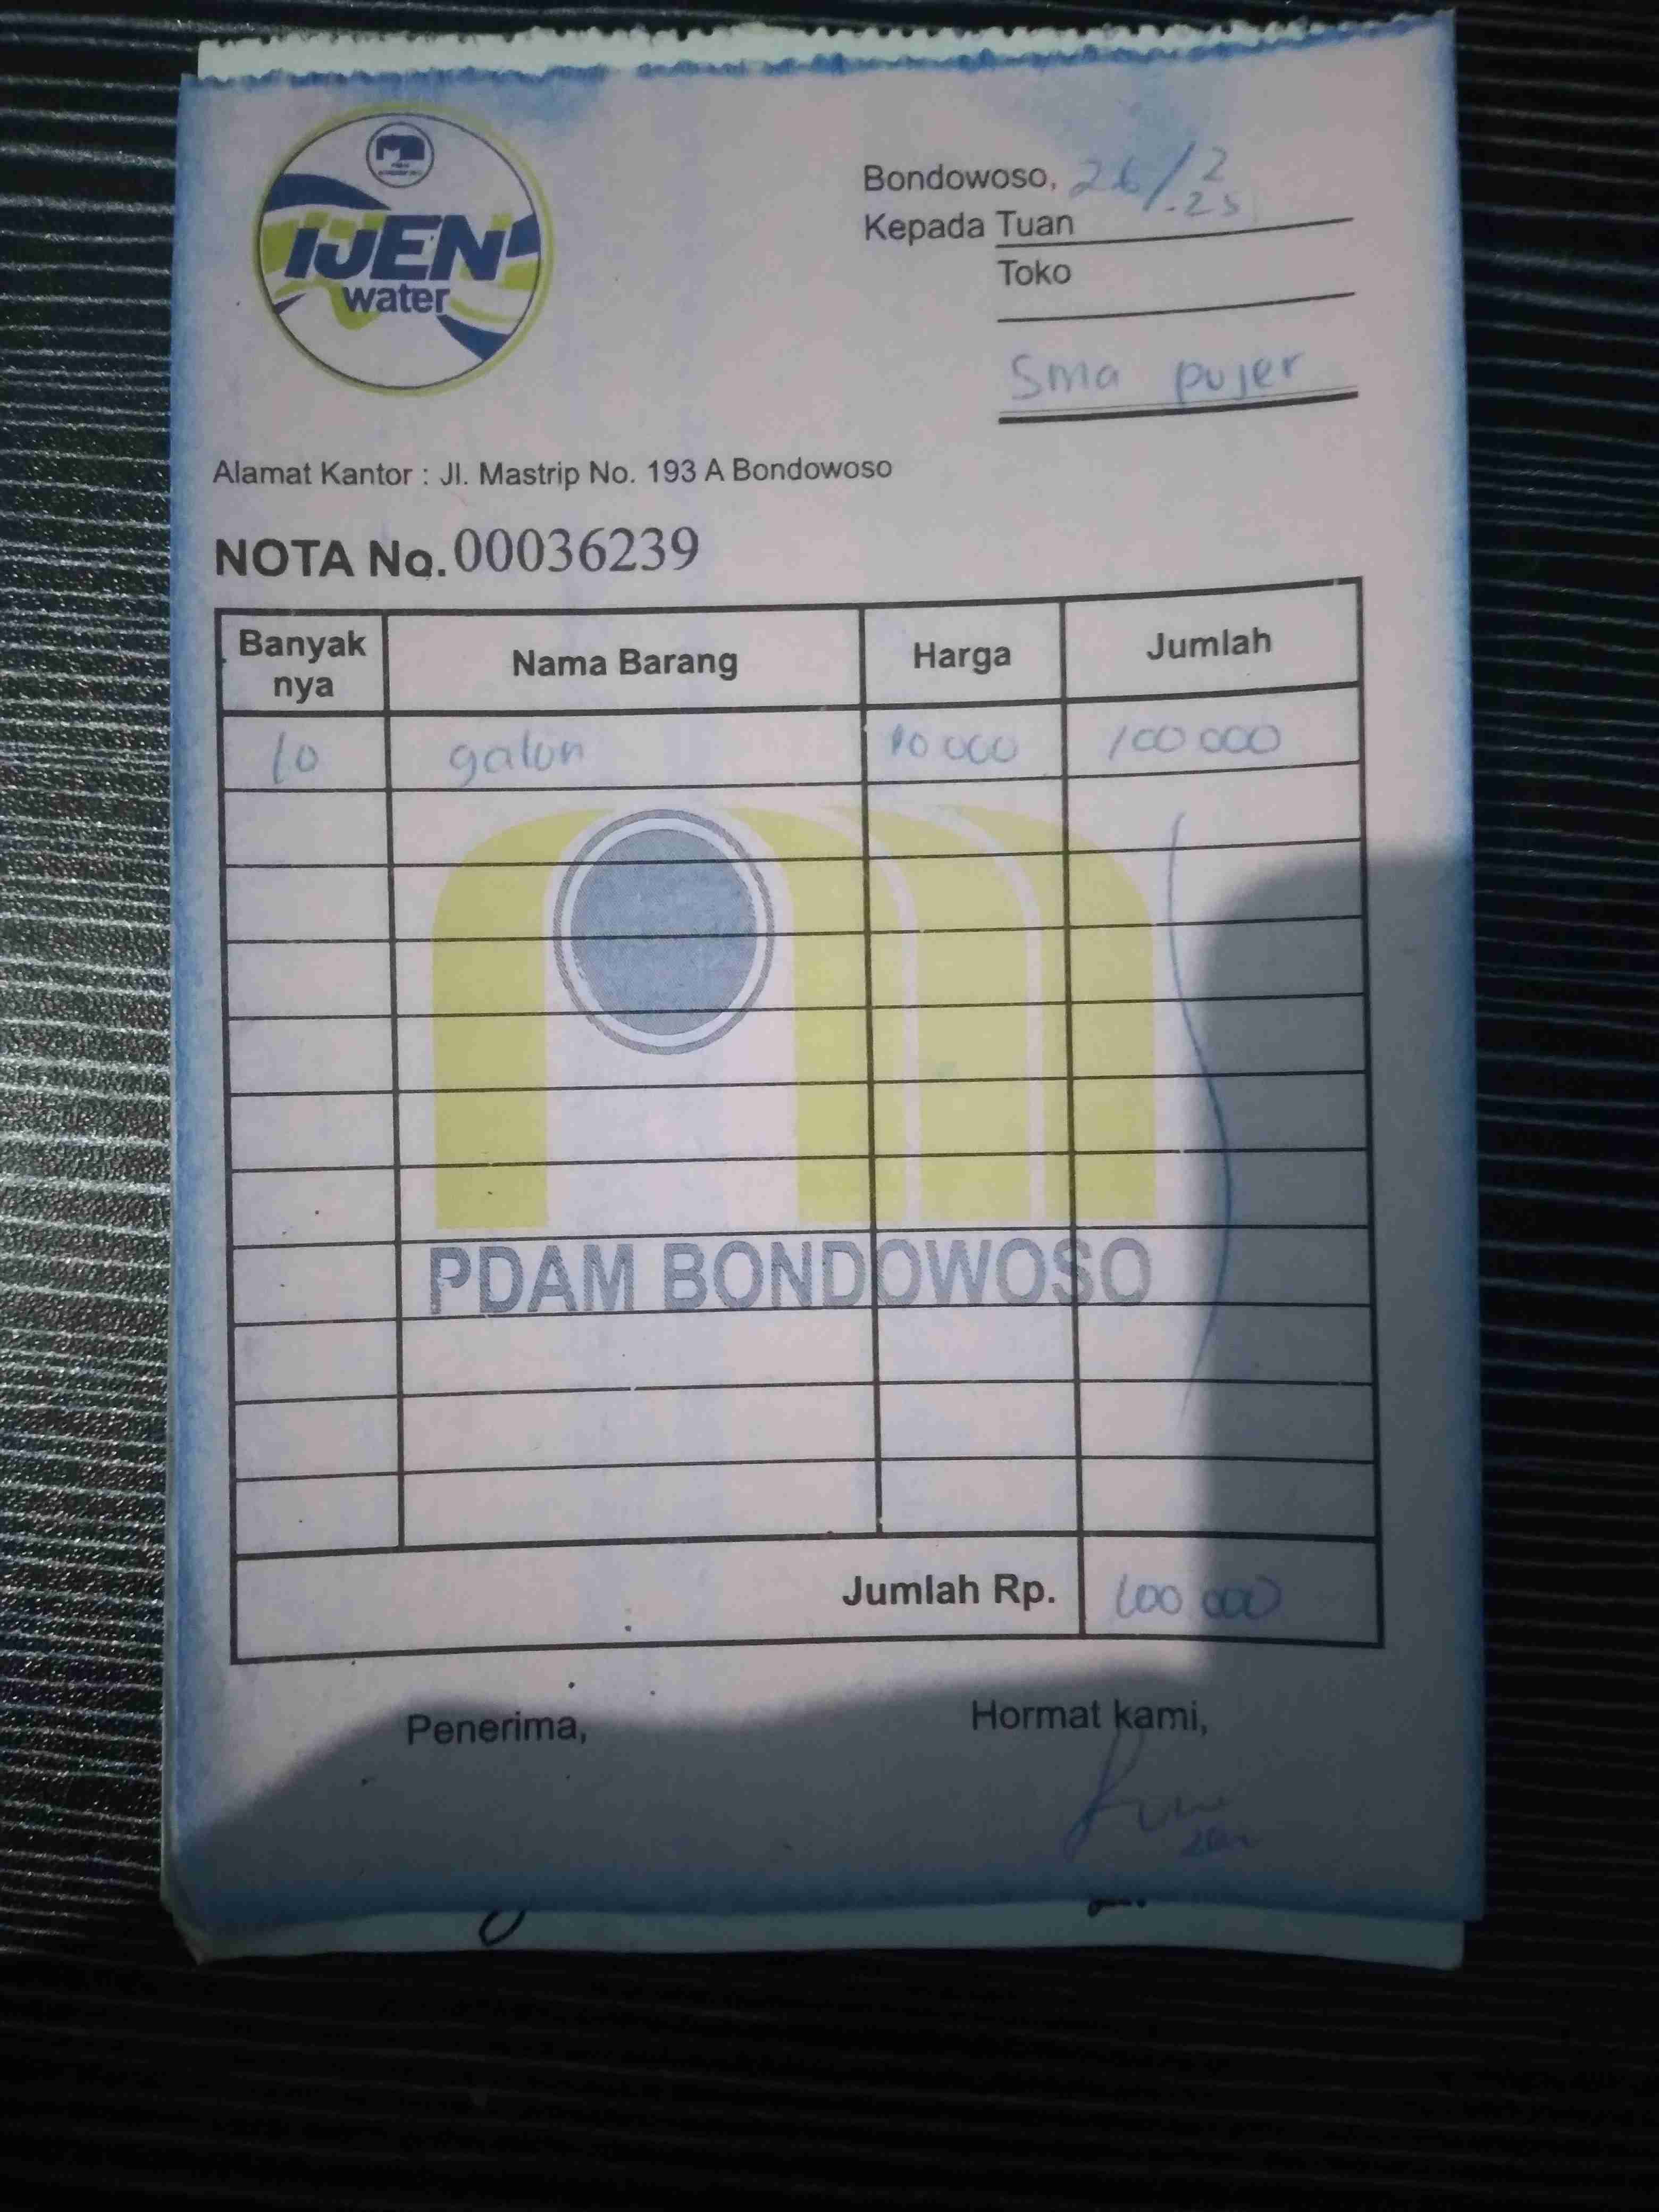 IJEN
water
Bondowoso, 26/2
.25
Kepada Tuan
Toko
Sma pujer
Alamat Kantor : Jl. Mastrip No. 193 A Bondowoso
NOTA No. 00036239
Banyak nya Nama Barang Harga Jumlah
10 galon 10 000 100 000
PDAM BONDOWOSO
Jumlah Rp. 100 000
Penerima, Hormat kami,